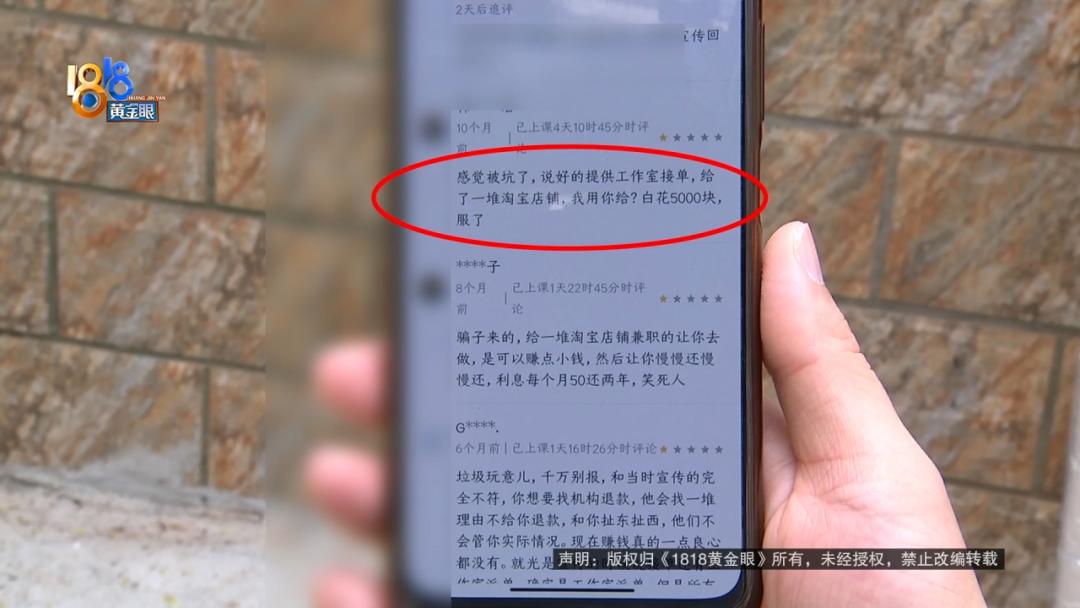 2天后追评
宣传回
1818
HUANG JIN YAN
黄金眼
10个月前
已上课4天10时45分时评论
感觉被坑了，说好的提供工作室接单，给
了一堆淘宝店铺，我用你给？白花5000块，
服了
****子
8个月前
已上课1天22时45分时评论
骗子来的，给一堆淘宝店铺兼职的让你去
做，是可以赚点小钱，然后让你慢慢还慢
慢还，利息每个月50还两年，笑死人
G****.
6个月前|已上课1天16时26分时评论
垃圾玩意儿，千万别报，和当时宣传的完
全不符，你想要找机构退款，他会找一堆
理由不给你退款，和你扯东扯西，他们不
会管你实际情况。现在赚钱真的一点良心
都没有。就光是
声明：版权归《1818黄金眼》所有，未经授权，禁止改编转载